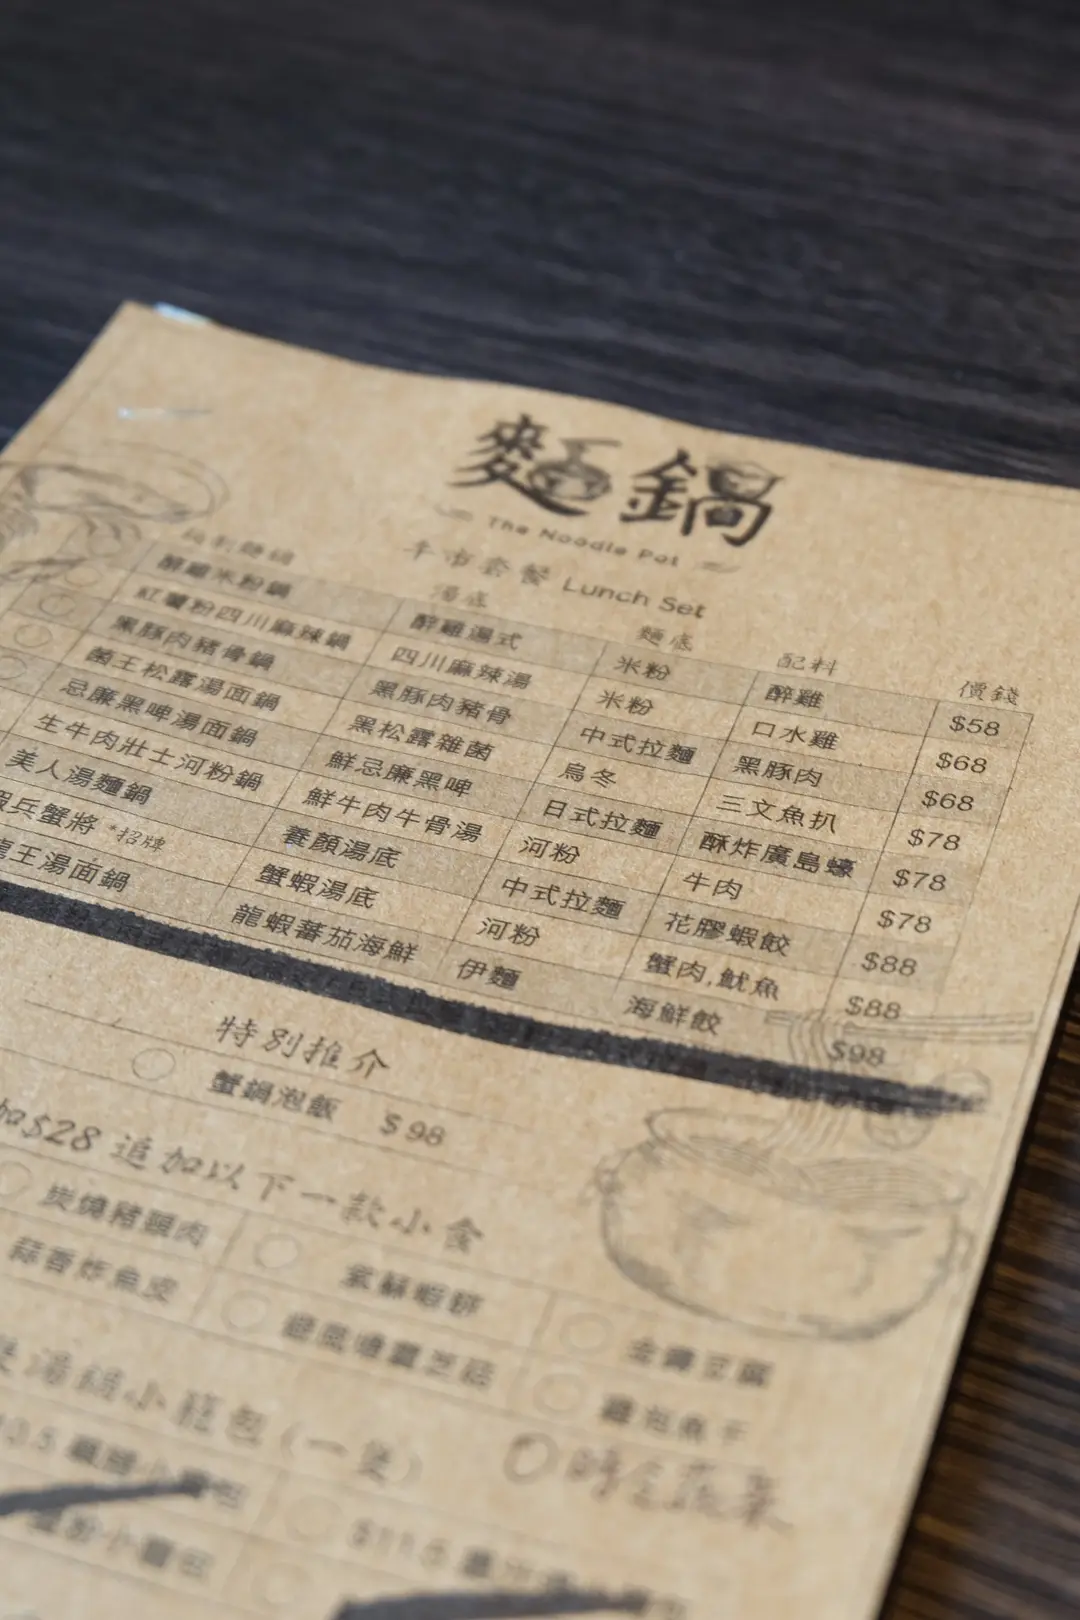 麵鍋
The Noodle Pot
午市套餐 Lunch Set
湯底 麵底 配料 價錢
醉雞米粉鍋 醉雞湯式 米粉 醉雞 $58
紅薯粉四川麻辣鍋 四川麻辣湯 米粉 口水雞 $68
黑豚肉豬骨鍋 黑豚肉豬骨 中式拉麵 黑豚肉 $68
菌王松露湯面鍋 黑松露雜菌 烏冬 三文魚扒 $78
忌廉黑啤湯面鍋 鮮忌廉黑啤 日式拉麵 酥炸廣島蠔 $78
生牛肉壯士河粉鍋 鮮牛肉牛骨湯 河粉 牛肉 $78
美人湯麵鍋 養顏湯底 中式拉麵 花膠蝦餃 $88
蝦兵蟹將 *招牌 蟹蝦湯底 河粉 蟹肉,魷魚 $88
龍王湯面鍋 龍蝦蕃茄海鮮 伊麵 海鮮餃 $98
特別推介
蟹鍋泡飯 $98
加$28 追加以下一款小食
炭燒豬頸肉 紫蘇蝦餅
蒜香炸魚皮
小籠包 (一隻)